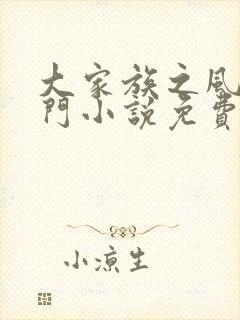 大家族之風
門小說免費
小涼生